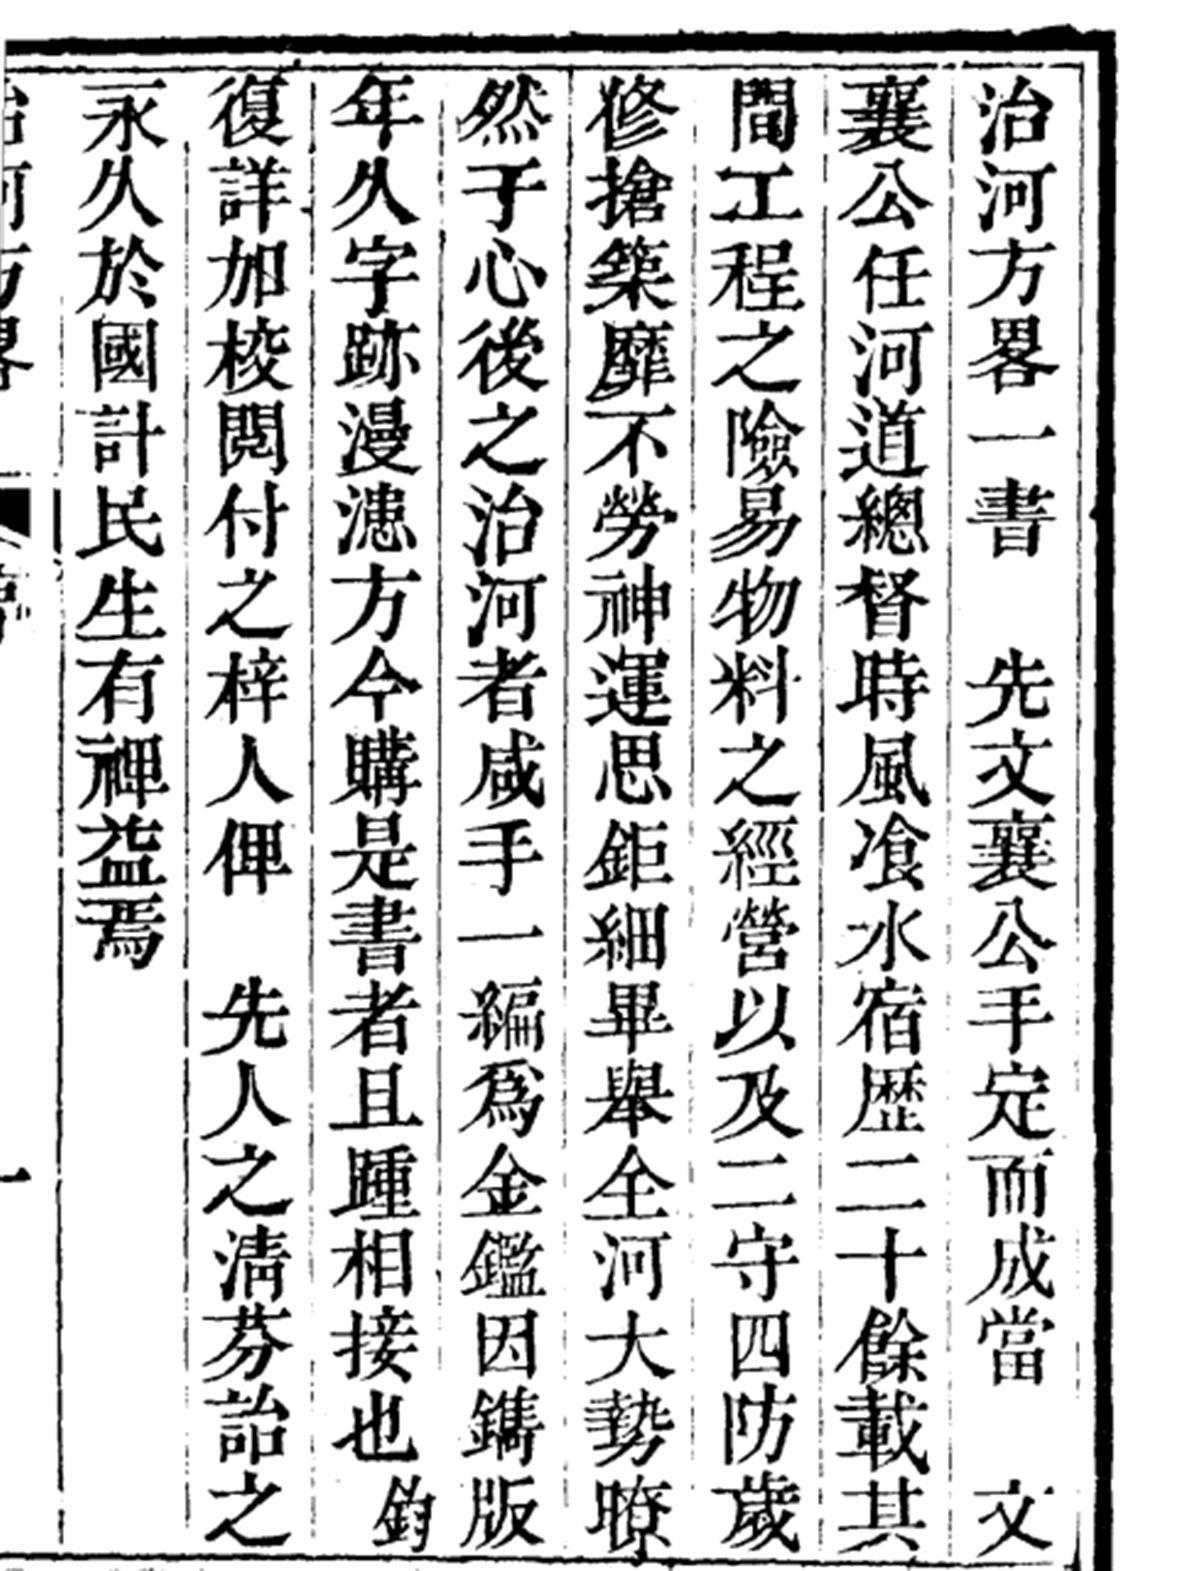 治河方畧一書　先文襄公手定而成當　文
襄公任河道總督時風飡水宿歴二十餘載其
間工程之險易物料之經營以及二守四防歲
修搶築靡不勞神運思鉅細畢舉全河大勢瞭
然于心後之治河者咸手一編爲金鑑因鐫版
年久字跡漫漶方今購是書者且踵相接也鈞
復詳加校閲付之梓人俾　先人之清芬詒之
永久於國計民生有裨益焉
治河方畧
一